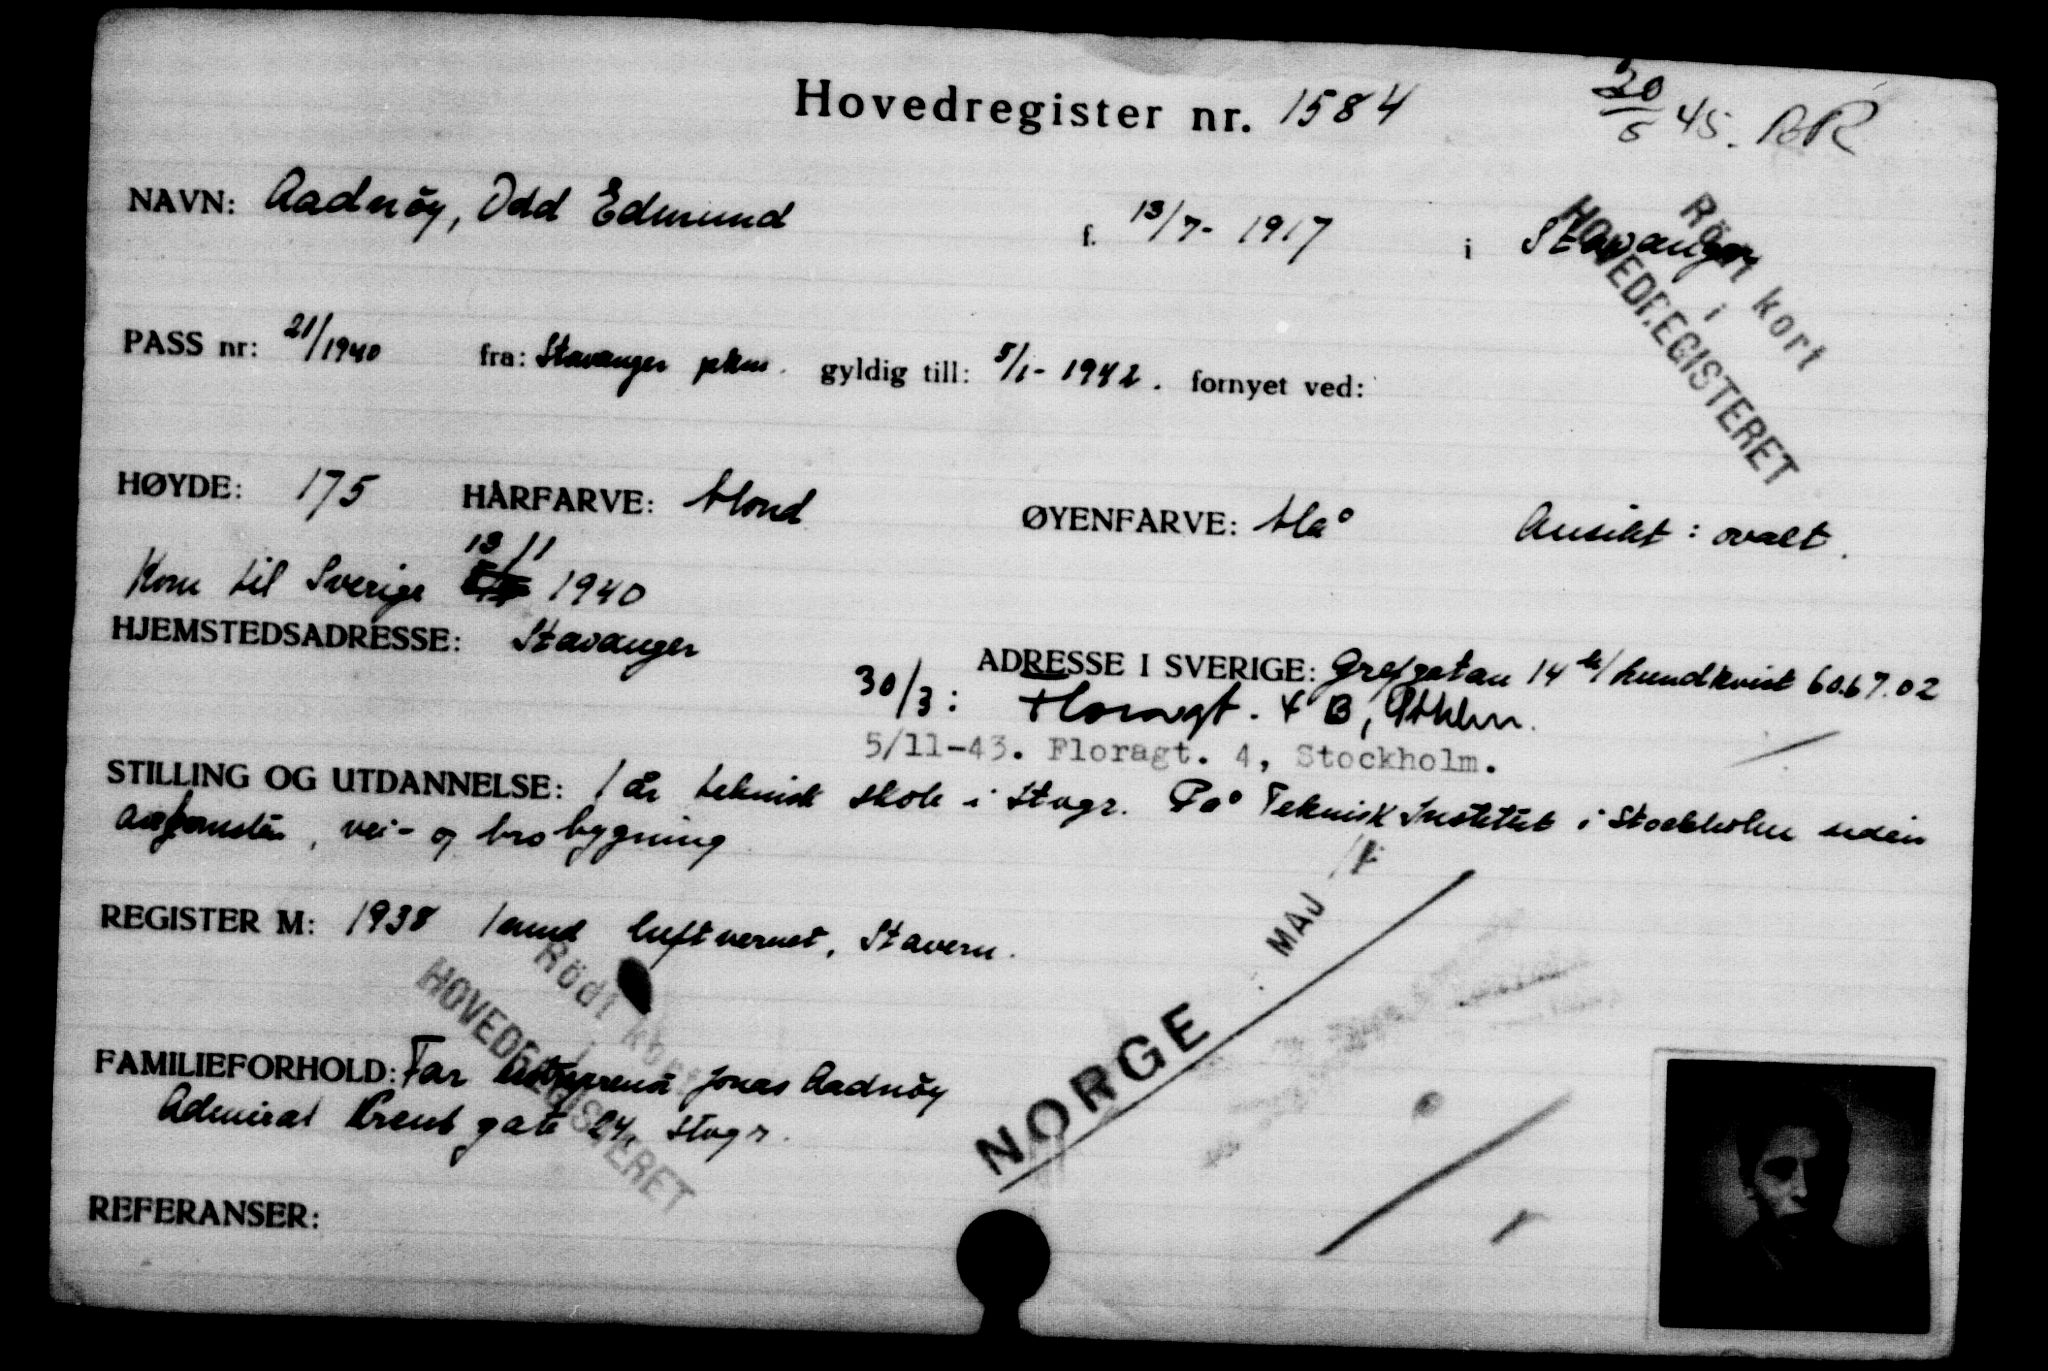 Hovedregister nr. 1584
20/5 45. AR
NAVN: Aadnöy, Odd Edmund f. 13/7- 1917 i Stavanger
Rödt kort
i
HOVEDREGISTERET
PASS nr: 21/1940 fra: Stavanger pkm. gyldig till: 5/1- 1942. fornyet ved:
HØYDE: 175 HÅRFARVE: blond ØYENFARVE: blå Ansikt: ovalt.
Kom til Sverige 13/11 1940
HJEMSTEDSADRESSE: Stavanger ADRESSE I SVERIGE: Grefgatan 14 b/ Lundkvist 60.67.02
30/3: Floragt. 4 B, Sthlm.
5/11-43. Floragt. 4, Stockholm.
STILLING OG UTDANNELSE: 1 år teknisk skole i Stvgr. På Teknisk Institut i Stockholm siden
ankomsten, vei- og brobygning
REGISTER M: 1938 1 mnd luftvernet, Stavern.
MAJ
NORGE
Rödt kort
i
HOVEDREGISTERET
FAMILIEFORHOLD: Far Jonas Aadnöy
Admiral gate 24, Stvgr.
REFERANSER: